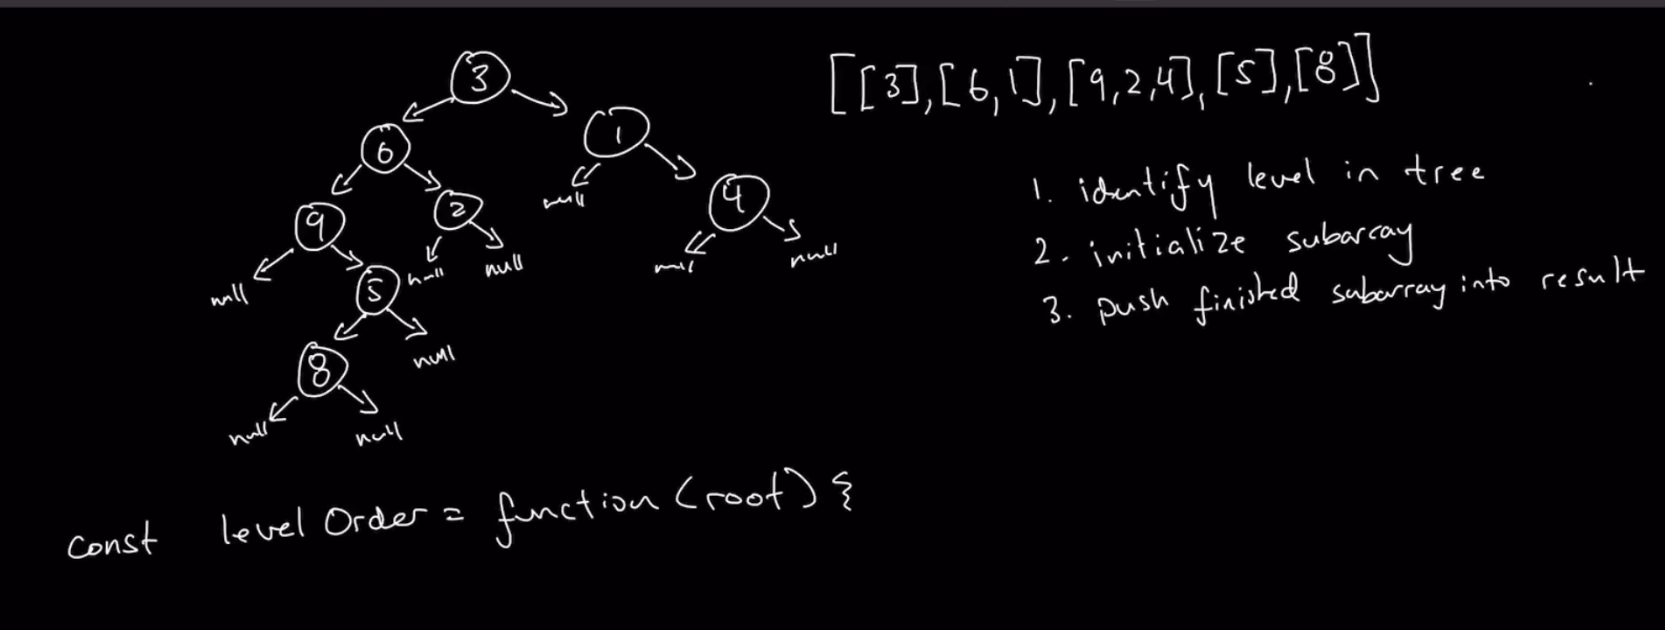 3
[[3],[6,1],[9,2,4],[5],[8]]
6
1
9
2
null
4
null
5
null
null
null
null
8
null
null
null
1. identify level in tree
2. initialize subarray
3. push finished subarray into result
const levelOrder = function(root){